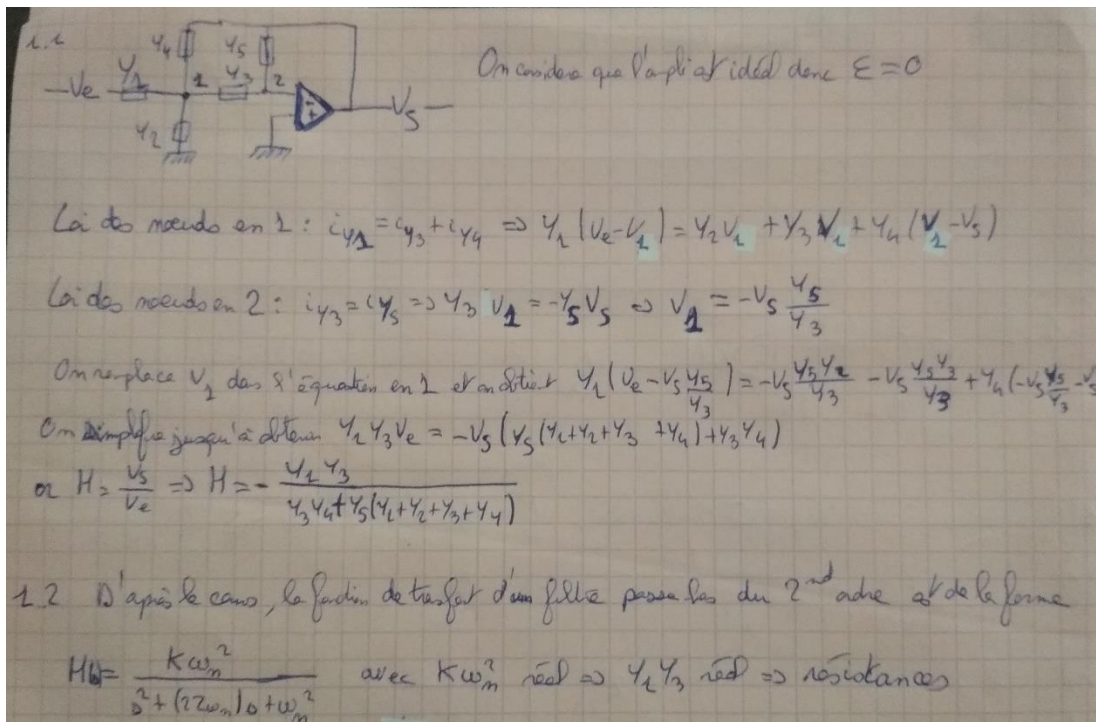 1.1
Y4 Y5
On considère que l'ampli est idéal donc ε = 0
Ve Y1 1 Y3 2 - + Vs
Y2
Loi des noeuds en 1 : iY1 = iY3 + iY4 => Y1 (Ve - V1) = Y2 V1 + Y3 V1 + Y4 (V1 - Vs)
Loi des noeuds en 2 : iY3 = iY5 => Y3 V1 = -Y5 Vs => V1 = -Vs Y5/Y3
On remplace V1 dans l'équation en 1 et on obtient Y1 (Ve - Vs Y5/Y3) = -Vs Y5Y2/Y3 - Vs Y5Y3/Y3 + Y4 (-Vs Y5/Y3 - Vs
On simplifie jusqu'à obtenir Y1 Y3 Ve = -Vs (Y5 (Y1 + Y2 + Y3 + Y4) + Y3 Y4)
or H = Vs/Ve => H = - Y1 Y3 / (Y3 Y4 + Y5 (Y1 + Y2 + Y3 + Y4))
1.2 D'après le cours, la fonction de transfert d'un filtre passe bas du 2nd ordre est de la forme
H = Kωn² / (p² + (2Zωn)p + ωn²) avec Kωn² réel => Y1 Y3 réel => résistances